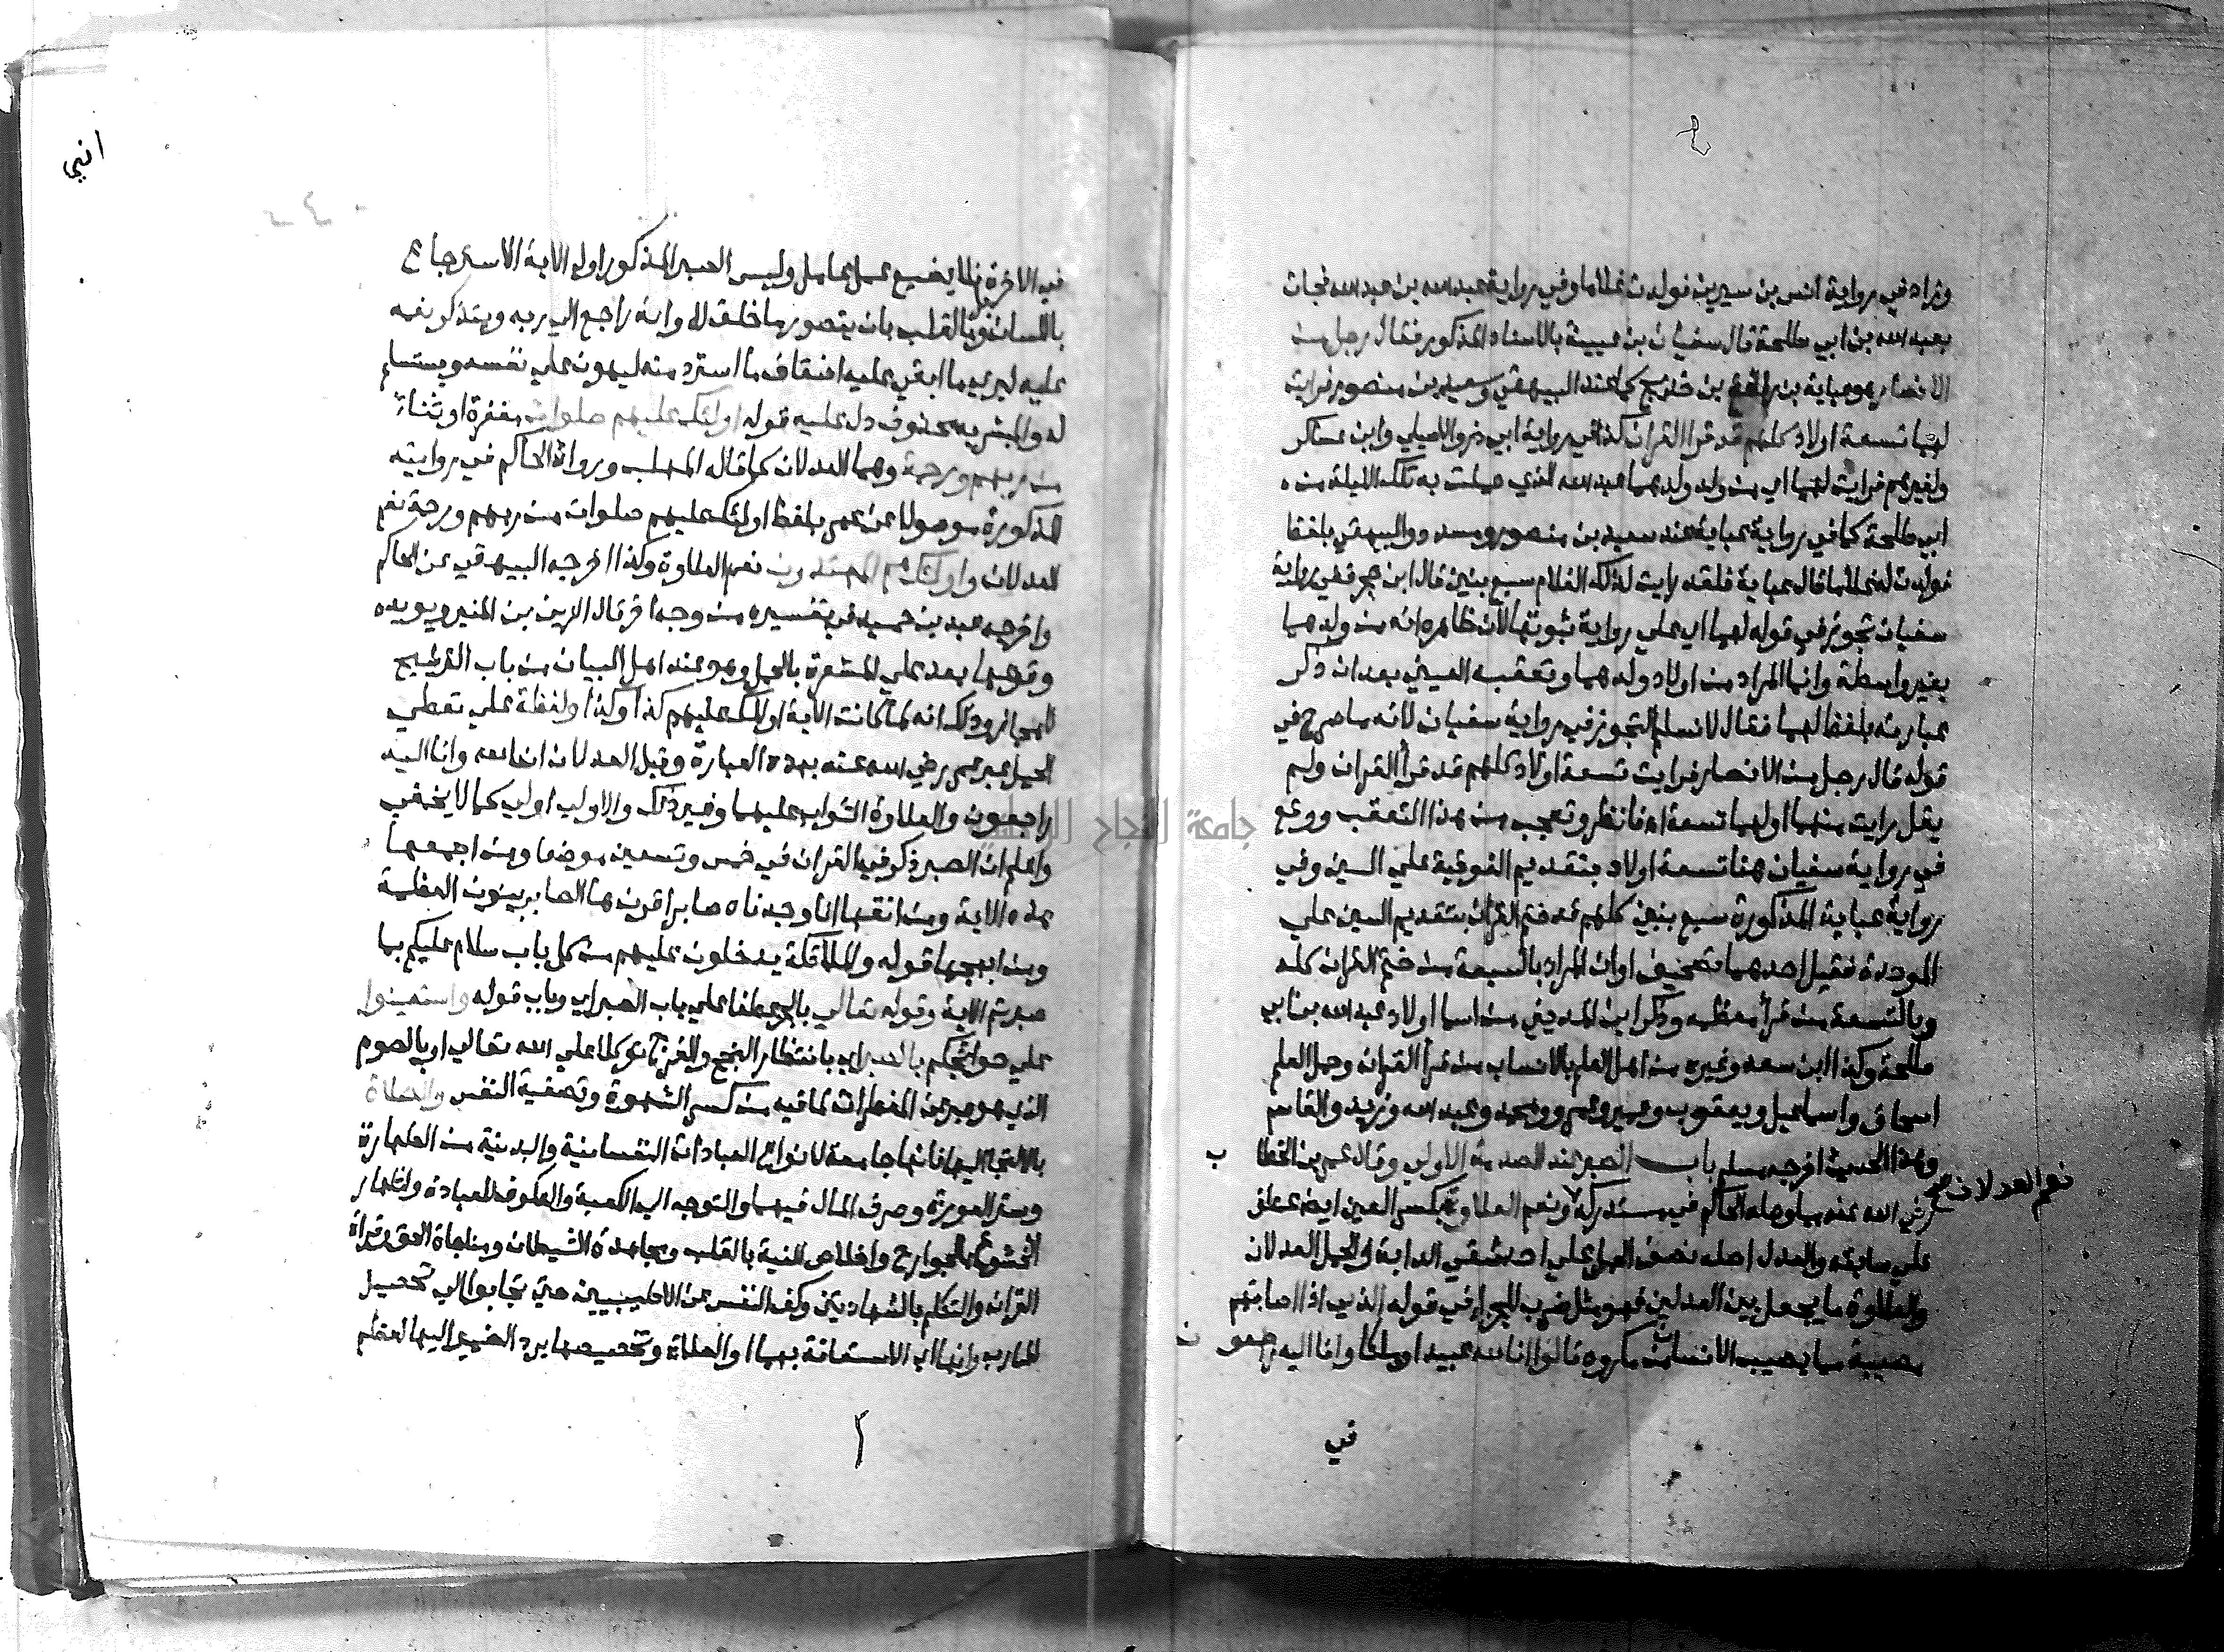 وزاد في رواية انس بن سيرين فولدت غلاما وفي رواية عبد الله بن عبد الله فجات
بعبد الله بن ابي طلحة قال سفيان بن عيينة بالاسناد المذكور فقال رجل من
الانصار هو عباية بن رافع بن خديج كما عند البيهقي وسعيد بن منصور فرايت
لهما تسعة اولاد كلهم قد قرا القران كذا في رواية ابي ذر والاصيلي وابن عساكر
ولغيرهم فرايت لهما اي من ولد ولدهما عبد الله الذي حملت به تلك الليلة من
ابي طلحة كما في رواية عباية عند سعيد بن منصور ومسدد والبيهقي بلفظ
فولدت له غلاما قال عباية فلقد رايت لذلك الغلام سبع بنين قال ابن حجر ففي رواية
سفيان تجوز في قوله لهما اي علي رواية ثبوتها لان ظاهره انه من ولدهما
بغير واسطة وانما المراد من اولاد ولدهما وتعقبه العيني بعد ان ذكر
عبارته بلفظ لهما فقال لا نسلم التجوز في رواية سفيان لانه ما صرح في
قوله قال رجل من الانصار فرايت تسعة اولاد كلهم قد قرأ القران ولم
يقل رايت منهما او لهما تسعة اه فانظر وتعجب من هذا التعقب ووقع
في رواية سفيان هنا تسعة اولاد بتقديم الفوقية علي السين وفي
رواية عباية المذكورة سبع بنين كلهم قد ختم القران بتقديم السين علي
الموحدة فقيل احدهما تصحيف او ان المراد بالسبعة من ختم القران كله
وبالتسعة من قرأ معظمه وذكر ابن المديني من اسما اولاد عبد الله بن ابي
طلحة وكذا ابن سعد وغيره من اهل العلم بالانساب من قرأ القران وحمل العلم
اسحاق واسماعيل ويعقوب وعمير وعمر ومحمد وعبد الله وزيد والقاسم
وهذا الحديث اخرجه مسلم باب الصبر عند الصدمة الاولي وقال عمر بن الخطاب
نعم العدلان صح
رضي الله عنه مما وصله الحاكم في مستدركه ونعم العلاوة بكسر العين ايضا عطف
علي سابقه والعدل اصله نصف الحمل علي احد شقي الدابة والحمل العدلان
والعلاوة ما يجعل بين العدلين فهو مثل ضرب للجزاء في قوله الذين اذا اصابتهم
مصيبة مما يصيب الانسان من مكروه قالوا انا لله عبيدا وملكا وانا اليه راجعون
في
انبي
في الاخرة فلا يضيع عمل عامل وليس الصبر المذكور اول الاية الاسترجاع
باللسان بل وبالقلب بان يتصور ما خلق لاجله وانه راجع الي ربه ويتذكر نعمه
عليه ليري ما ابقي عليه اضعاف ما استرد منه ليهون علي نفسه ويستسلم
له والمبشر به محذوف دل عليه قوله اولئك عليهم صلوات مغفرة او ثناء
من ربهم ورحمة وهما العدلان كما قاله المهلب ورواه الحاكم في روايته
المذكورة موصولا عن عمر بلفظ اولئك عليهم صلوات من ربهم ورحمة نعم
العدلان واولئك هم المهتدون نعم العلاوة وكذا اخرجه البيهقي عن الحاكم
واخرجه عبد بن حميد في تفسيره من وجه اخر قال الزين بن المنير ويويده
وقوعهما بعد علي المشعرة بالحمل وهو عند اهل البيان من باب الترشيح
للمجاز وذلك انه لما كانت الاية اولئك عليهم كذا وكذا ولفظة علي تعطي
الحمل عبر عمر رضي الله عنه بهذه العبارة وقيل العدلان انا لله وانا اليه
راجعون والعلاوة الثواب عليهما وغير ذلك والاولي اولي كما لا يخفي
واعلم ان الصبر ذكر في القران في خمس وتسعين موضعا ومن اجمعها
هذه الاية ومن انقها انا وجدناه صابرا قرن هذا الصابر بنون العظمة
ومن ابهجها قوله والملائكة يدخلون عليهم من كل باب سلام عليكم بما
صبرتم الاية وقوله تعالي بالجر عطفا علي باب الصبر اي وباب قوله واستعينوا
علي حوائجكم بالصبر اي بانتظار النجح والفرج توكلا علي الله تعالي او بالصوم
الذي هو صبر عن المفطرات لما فيه من كسر الشهوة وتصفية النفس والصلاة
بالالتجا اليها فانها جامعة لانواع العبادات النفسانية والبدنية من الطهارة
وستر العورة وصرف المال فيهما والتوجه الي الكعبة والعكوف للعبادة واظهار
الخشوع بالجوارح واخلاص النية بالقلب ومجاهدة الشيطان ومناجاة الحق وقراة
القران والتكلم بالشهادتين وكف النفس عن الاطيبين حتي تجابوا الي تحصيل
المارب وانها اي الاستعانة بهما او الصلاة وتخصيصها برد الضمير اليها لعظم